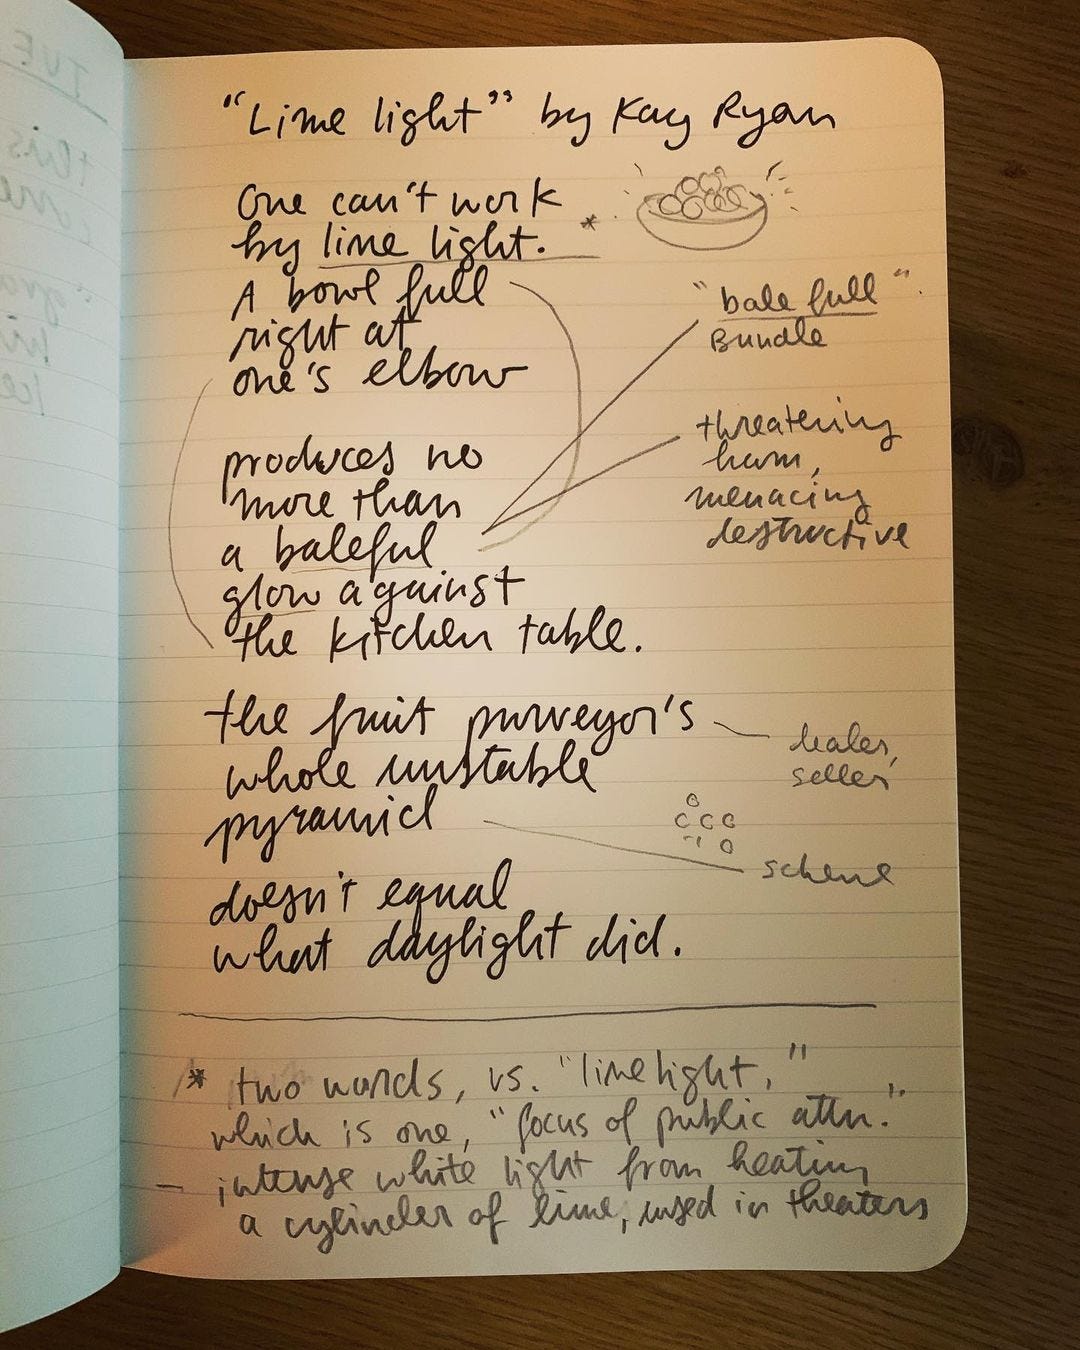 "Lime light" by Kay Ryan
One can't work
by lime light. *
A bowl full
right at
one's elbow
produces no
more than
a baleful
glow against
the kitchen table.
the fruit purveyor's
whole unstable
pyramid
doesn't equal
what daylight did.
"bale full"
Bundle
threatening
harm,
menacing
destructive
dealer,
seller
scheme
* two words, vs. "limelight,"
which is one, "focus of public attn."
– intense white light from heating
a cylinder of lime, used in theaters